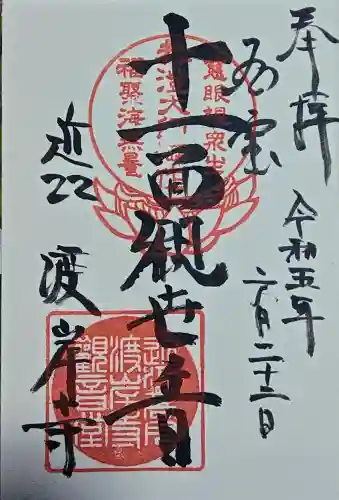 奉拝
令和五年
六月二十三日
国宝
十一面観世音
近22
渡岸寺
慈眼視衆生
福聚海無量
渡岸寺
観音堂